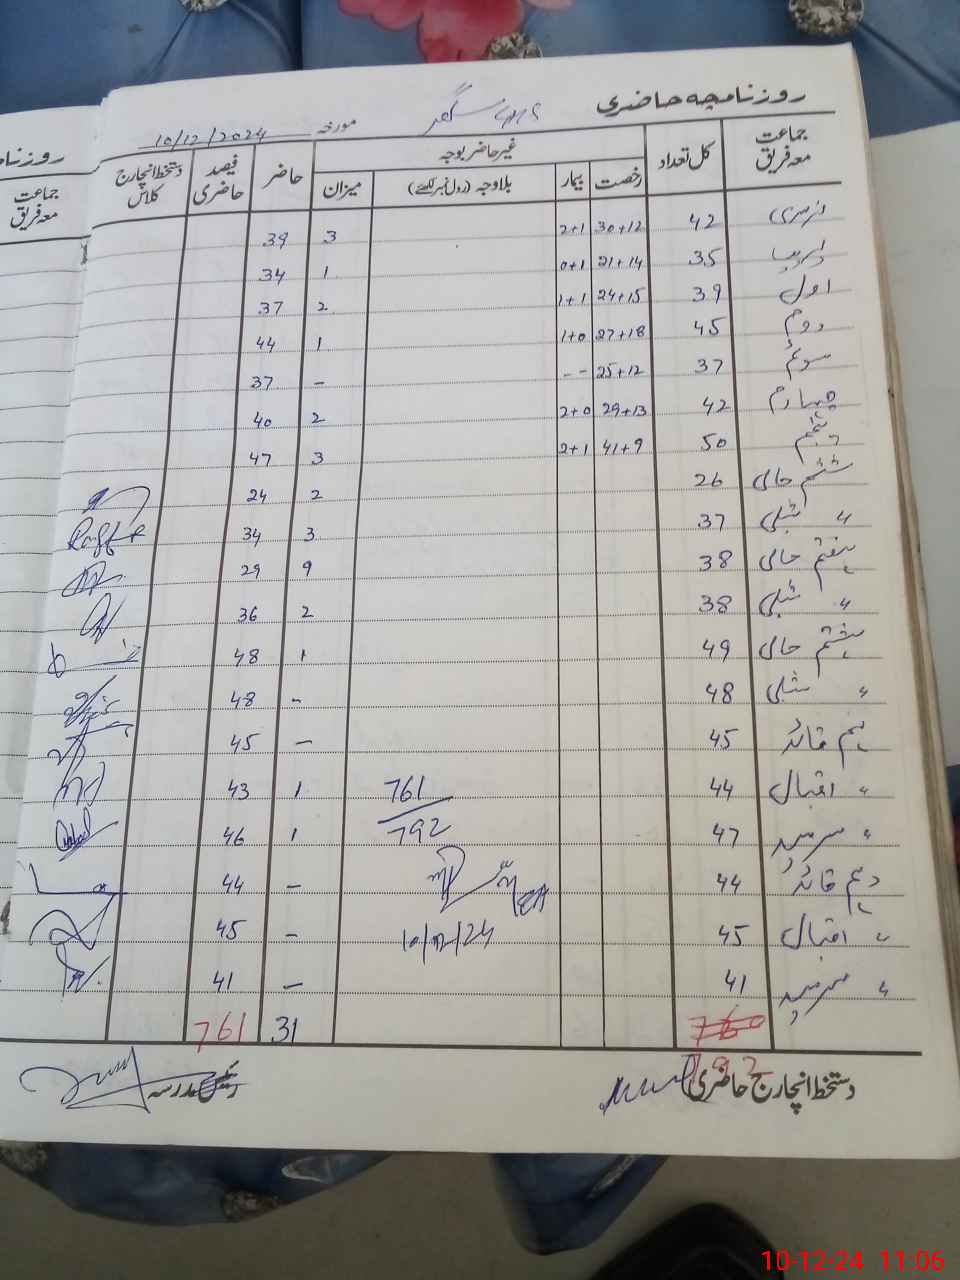 روزنامچہ حاضری GPHS سگھر مورخہ 10/12/2024
جماعت معہ فریق کل تعداد غیر حاضر بوجہ حاضر فیصد حاضری دستخط انچارج کلاس
رخصت بیمار بلاوجہ (رول نمبر لکھئے) میزان
نرسری 42 30+12 2+1 3 39
35 21+14 0+1 1 34
اول 39 24+15 1+1 2 37
دوم 45 27+18 1+0 1 44
سوئم 37 25+12 - - - 37
چہارم 42 29+13 2+0 2 40
پنجم 50 41+9 2+1 3 47
ششم حالی 26 2 24
〃 شبلی 37 3 34
ہفتم حالی 38 9 29
〃 شبلی 38 2 36
ہشتم حالی 49 1 48
〃 شبلی 48 - 48
نہم قائد 45 - 45
〃 اقبال 44 761 1 43
〃 سرسید 47 792 1 46
دہم قائد 44 - 44
〃 اقبال 45 10/12/24 - 45
〃 سرسید 41 - 41
760 31 761
792
دستخط انچارج حاضری رئیس مدرسہ
روزنامچہ
جماعت معہ فریق
10-12-24 11:06